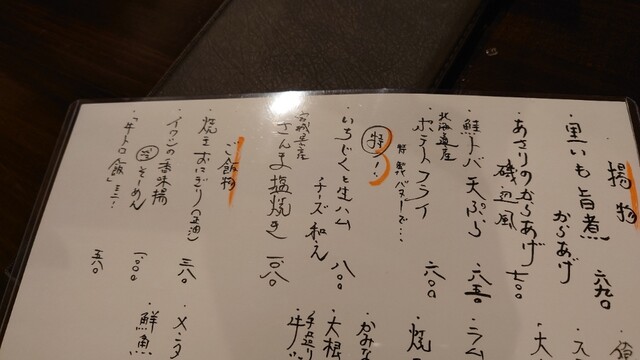 揚物
・里いも旨煮
からあげ 六九〇
・あさりのからあげ
磯辺風 七〇〇
・鮭トバ天ぷら 六五〇
北海道産
・ポテトフライ 六〇〇
特製バターで・・・
特
・いちじくと生ハム
チーズ和え 八〇〇
宮城県産
さんま塩焼き 一〇八〇
ご飯物
・焼きおにぎり(正油) 三八〇
・イワシの香味揚
そうめん 一〇〇〇
・「牛トロ飯」ミニ! 五八〇
・大
・ラム
・焼
・かみな
・大根
手造り
牛
・メンタ
・鮮魚